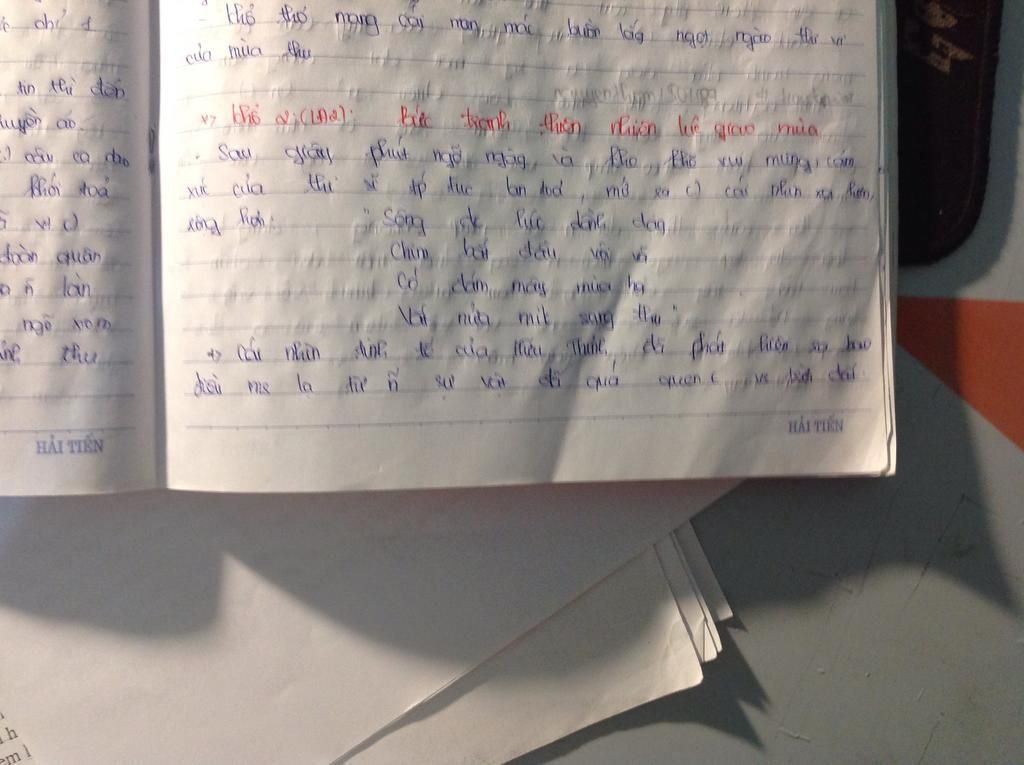 c chỉ 1
tin thì đến
huyền ảo.
c) câu ca dao
khói toả
vs c)
đoàn quân
ñ làn
ngõ xóm
thu
HẢI TIẾN
- khổ thơ mang cái man mác, buồn bâng ngọt ngào thi vị
của mùa thu
=> khổ 2: (LĐ2): Bức tranh thiên nhiên lúc giao mùa
- Sau giây phút ngỡ ngàng và khe khẽ vui mừng, cảm
xúc của thi sĩ tp tục lan toả, mở ra c) cái nhìn xa hơn,
rộng hơn: "Sông đc lúc dềnh dàng
Chim bắt đầu vội vã
Có đám mây mùa hạ
Vắt nửa mình sang thu"
=> Cái nhìn tinh tế của Hữu Thỉnh đã phát hiện ra bao
điều ms lạ từ ñ sự vật đã quá quen vs
HẢI TIẾN
h
em l